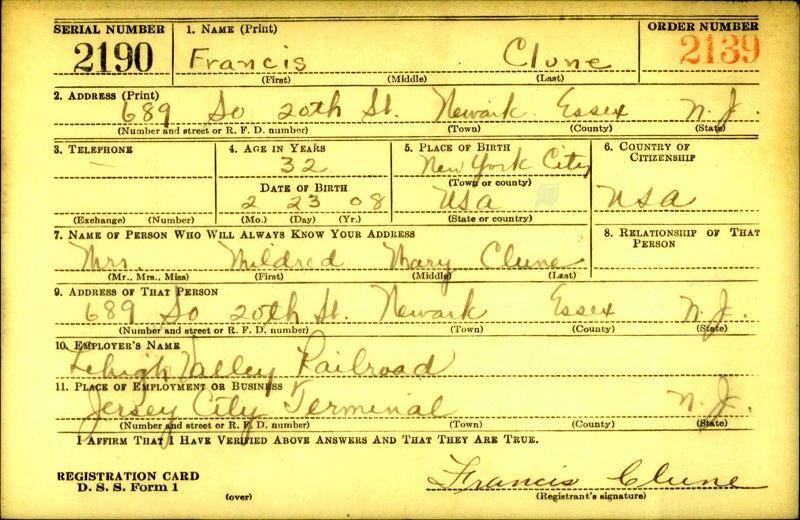 SERIAL NUMBER 1. NAME (Print) ORDER NUMBER
2190 Francis Clune 2139
(First) (Middle) (Last)
2. ADDRESS (Print)
689 So 20th St. Newark Essex N.J.
(Number and street or R. F. D. number) (Town) (County) (State)
3. TELEPHONE 4. AGE IN YEARS 5. PLACE OF BIRTH 6. COUNTRY OF CITIZENSHIP
— 32 New York City
(Town or county)
DATE OF BIRTH
2 23 08 USA USA
(Exchange) (Number) (Mo.) (Day) (Yr.) (State or country)
7. NAME OF PERSON WHO WILL ALWAYS KNOW YOUR ADDRESS 8. RELATIONSHIP OF THAT PERSON
Mrs. Mildred Mary Clune
(Mr., Mrs., Miss) (First) (Middle) (Last)
9. ADDRESS OF THAT PERSON
689 So 20th St. Newark Essex N.J.
(Number and street or R. F. D. number) (Town) (County) (State)
10. EMPLOYER'S NAME
Lehigh Valley Railroad
11. PLACE OF EMPLOYMENT OR BUSINESS
Jersey City Terminal N.J.
(Number and street or R. F. D. number) (Town) (County) (State)
I AFFIRM THAT I HAVE VERIFIED ABOVE ANSWERS AND THAT THEY ARE TRUE.
REGISTRATION CARD
D. S. S. Form 1 Francis Clune
(over) (Registrant's signature)